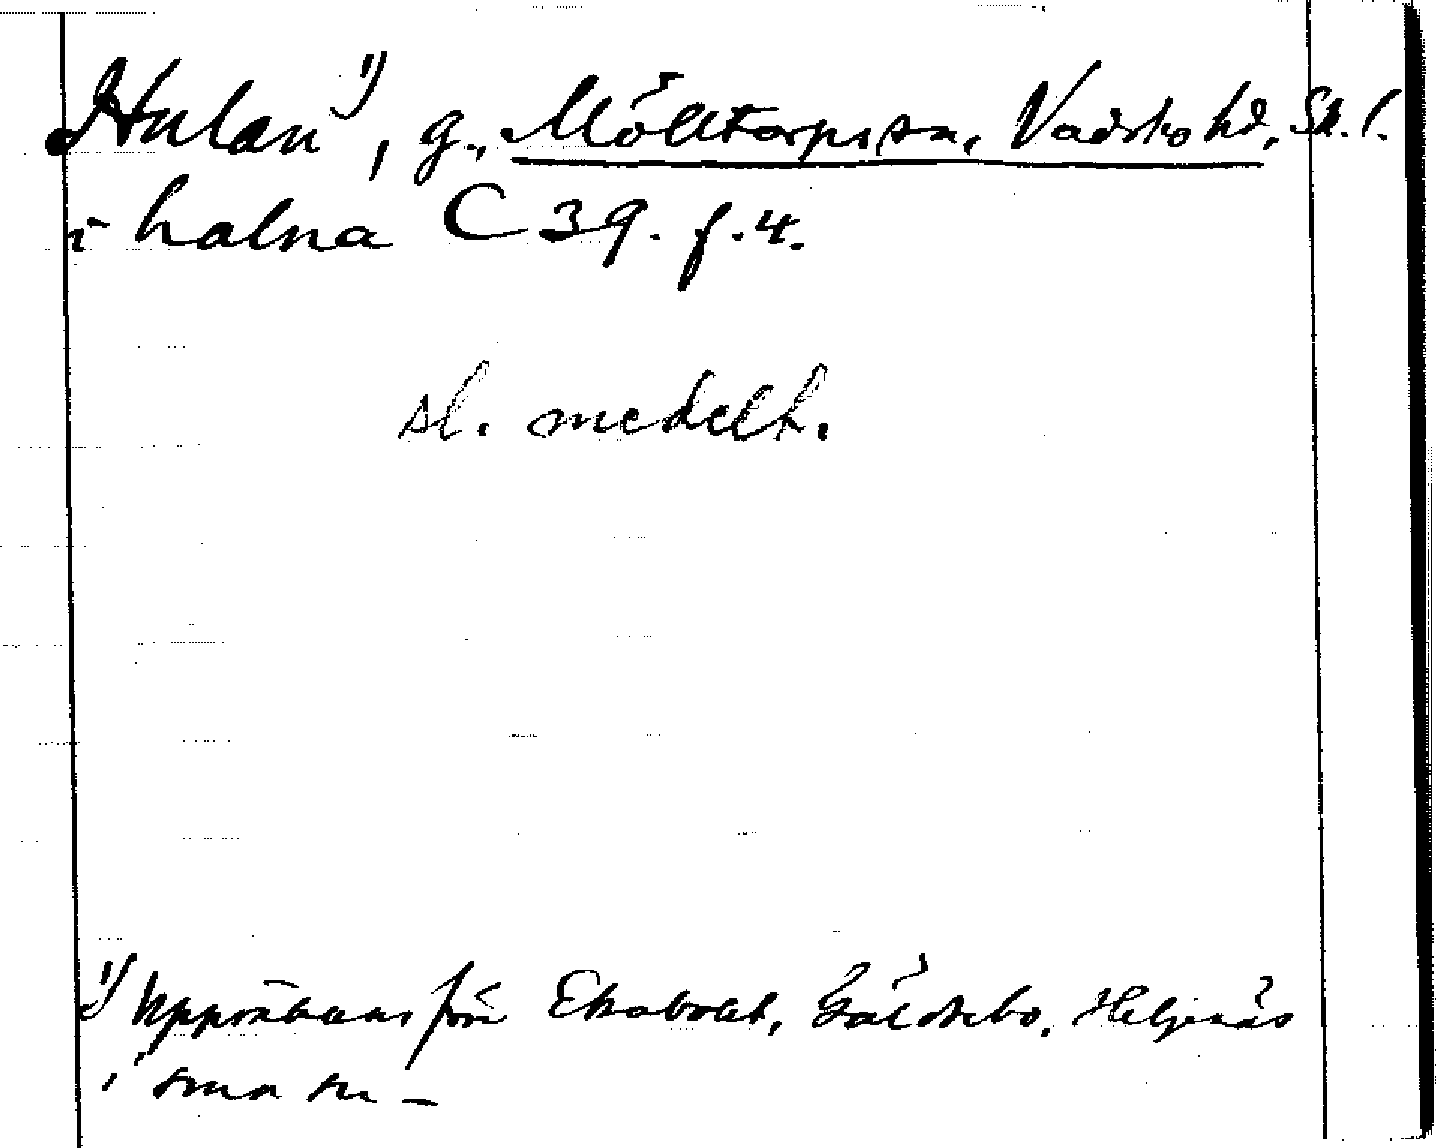 Hulan ¹), g., Mölltorps sn, Vadsbo hd, Sk. l.
i halna C 39. f. 4.
sl. medelt.
¹) Uppräknas från Ekabolet, Gälsebo, Heljenäs
i sma sn –